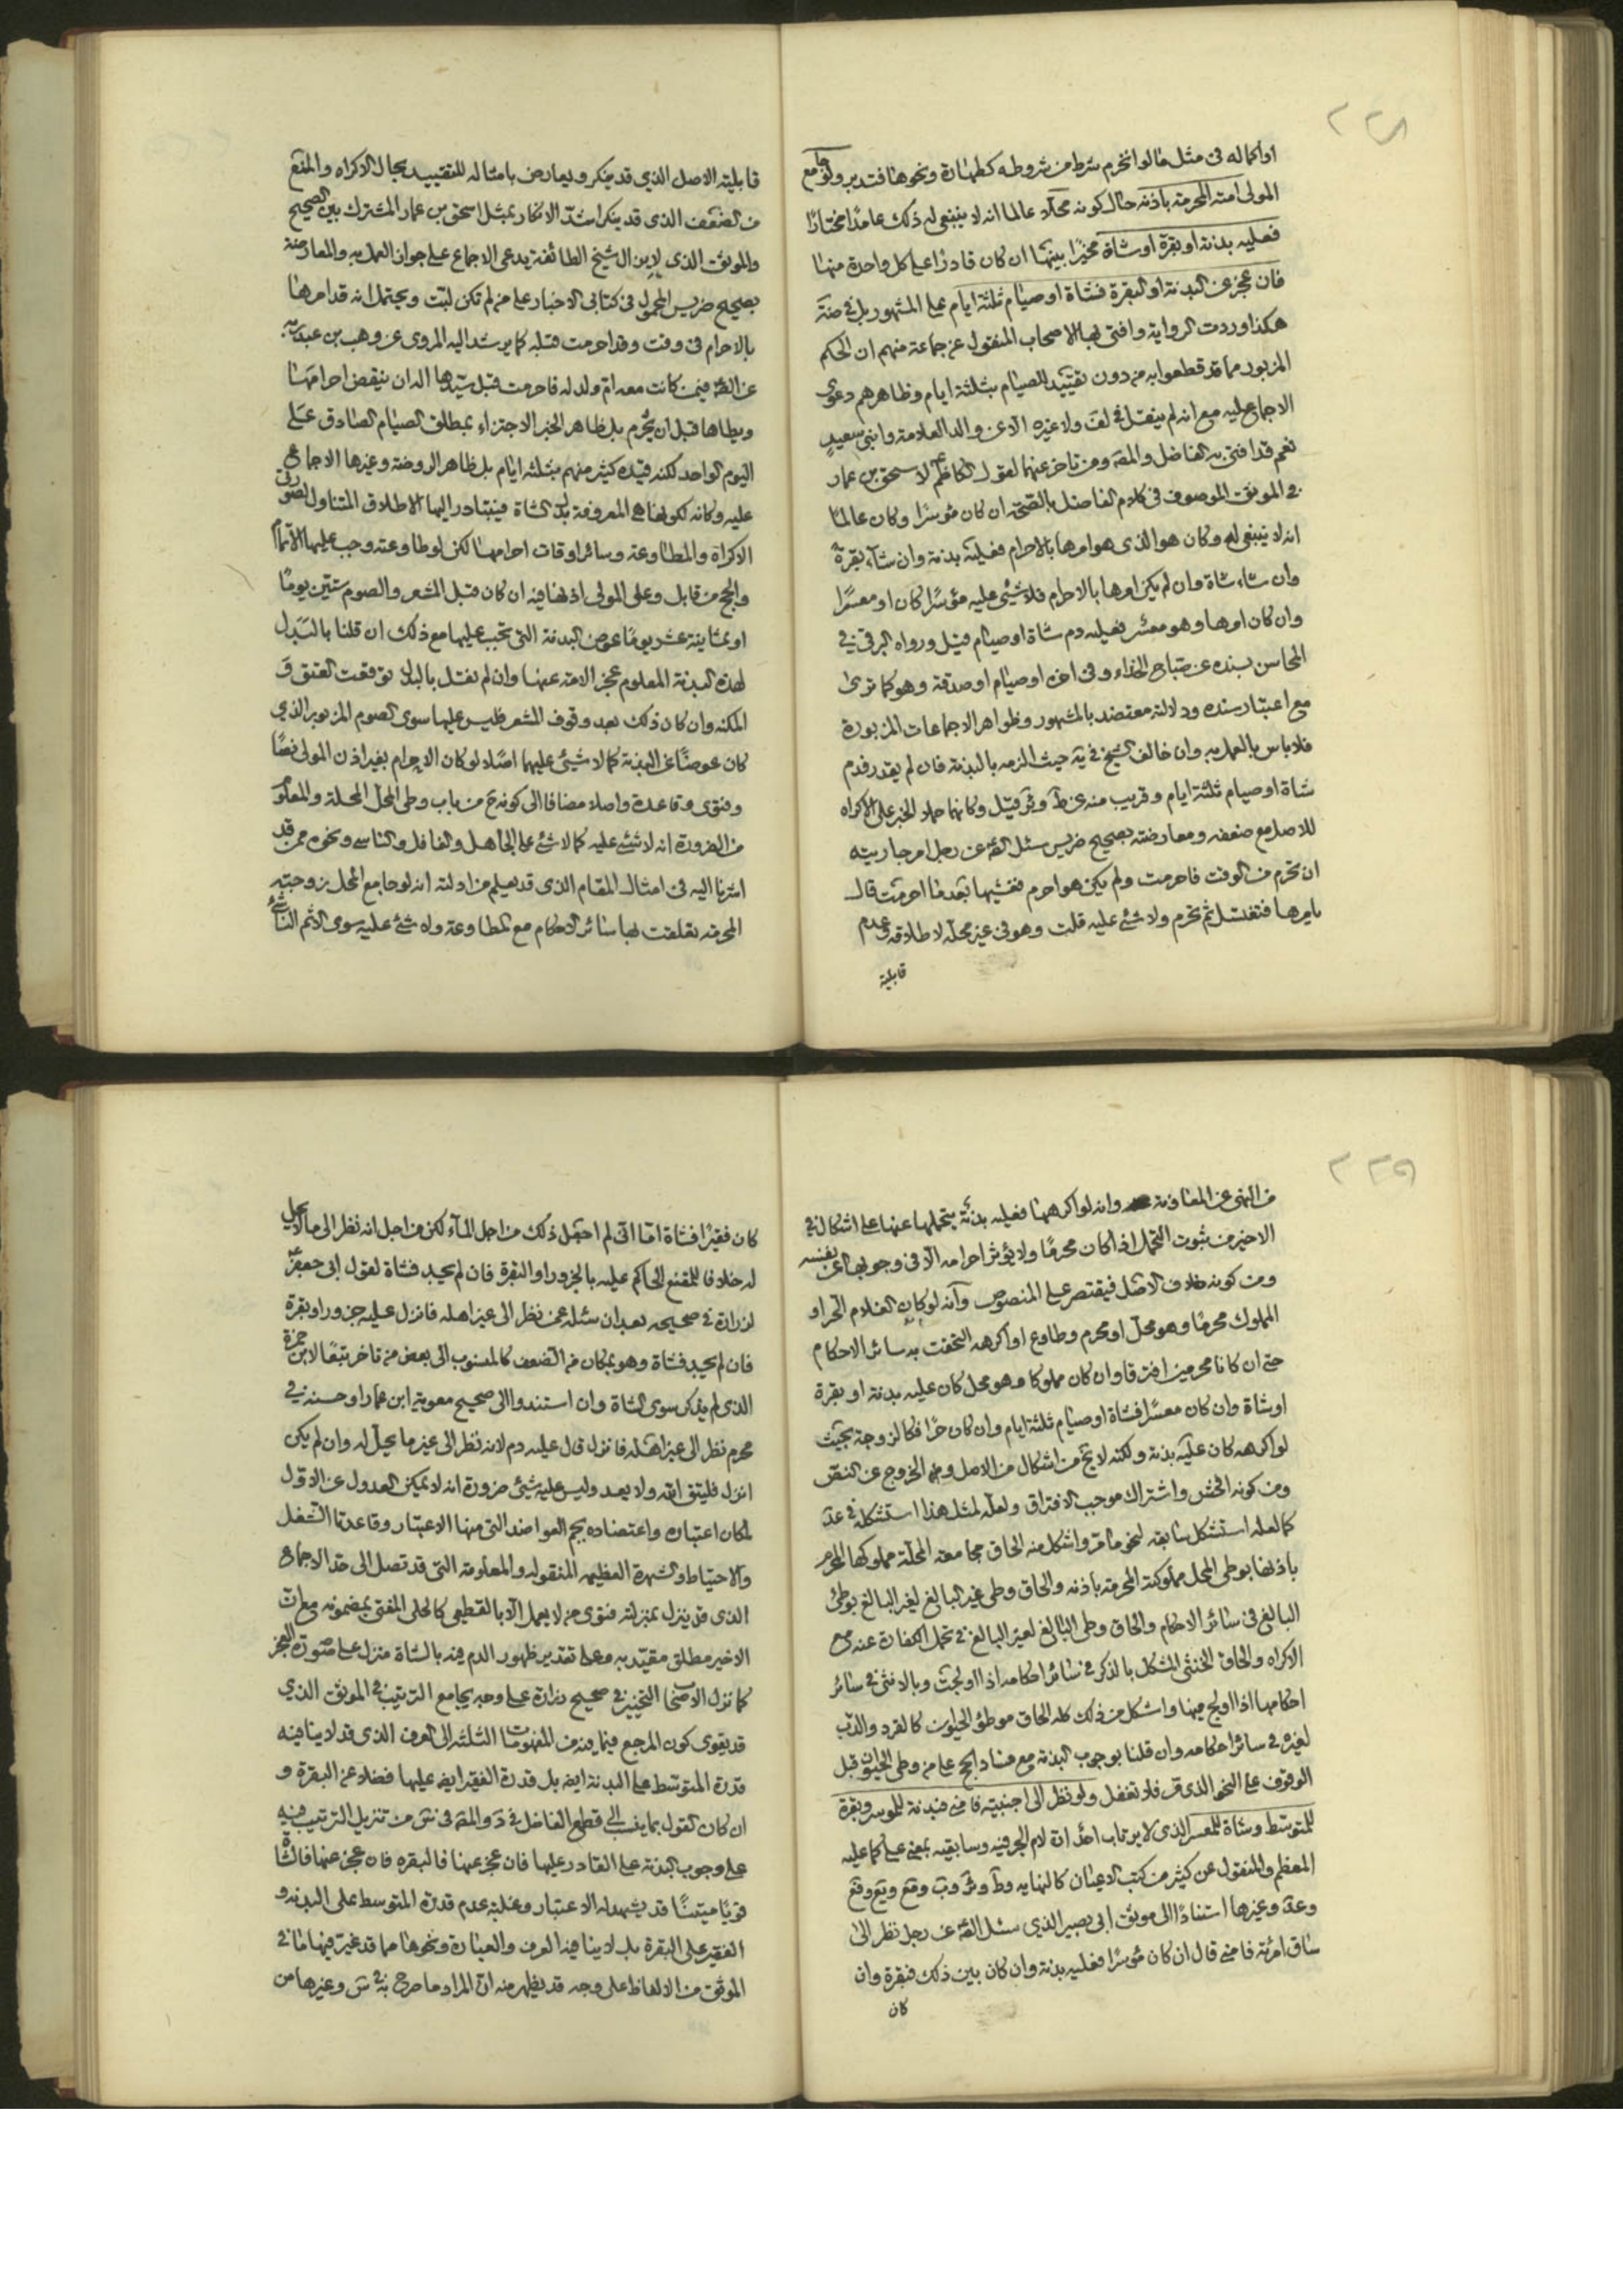 ٢٢٨
او اكماله فى مثل ما لو انخرم شرط من شروطه كطهارة ونحوها فتدبر ولو جامع
المولى امته المحرمة باذنه حال كونه محلا عالما انه لا ينبغى له ذلك عامدا مختارا
فعليه بدنة او بقرة او شاة مخيرا بينها ان كان قادرا على كل واحدة منها
فان عجز عن البدنة او البقرة فشاة او صيام ثلثة ايام على المشهور بل فى ضة
هكذا وردت الرواية وافتى بها الاصحاب المنقول عن جماعة منهم ان الحكم
المزبور مما قد قطعوا به من دون تقييد للصيام بثلثة ايام وظاهرهم دعوى
الاجماع عليه مع انه لم ينقل فى لف ولا غيره الا عن والد العلامة وابنى سعيد
نعم قد افتى به الفاضل والمقد ومن تاخر عنهما لقول الكاظم لاسحق بن عمار
فى الموثق الموصوف فى كلام الفاضل بالصحة ان كان موسرا وكان عالما
انه لا ينبغى له وكان هو الذى هو امرها بالاحرام فعليه بدنة وان شاء بقرة
وان شاء شاة وان لم يكن امرها بالاحرام فلا شيئ عليه موسرا كان او معسرا
وان كان امرها وهو معسر فعليه دم شاة او صيام قيل ورواه البرقى فى
المحاسن بسنده عن صباح الحذاء وفى اخره او صيام او صدقة وهو كما ترى
مع اعتبار سنده ودلالته معتضد بالمشهور وظواهر الاجماعات المزبورة
فلا باس بالعمل به وان خالف الشيخ فى ية حيث الزمه بالبدنة فان لم يقدر فدم
شاة او صيام ثلثة ايام وقريب منه عن ط وئر قيل وكانهما حملا الخبر على الاكراه
للاصل مع ضعفه ومعارضته بصحيح ضريس سئل الصّ عن رجل امر جاريته
ان تحرم من الوقت فاحرمت ولم يكن هو احرم فغشيها بعدما احرمت قال
يامرها فتغتسل ثم تحرم ولا شئ عليه قلت وهو فى غير محله لاطلاقه وعدم
قابلية
قابلية الاصل الذى قد ينكر ويعارض بامثاله للتقييد بحال الاكراه والمنع
من الضعف الذى قد ينكر اشد الانكار بمثل اسحق بن عمار المشترك بين الصحيح
والموثق الذى لا يزال شيخ الطائفة يدعى الاجماع على جواز العمل به والمعارضة
بصحيح ضريس المحمول فى كتابى الاخبار على من لم تكن لبت ويحتمل انه قد امرها
بالاحرام فى وقت وقد احرمت قبله كما يرشد اليه المروى عن وهب بن عبد ربه
عن الصّ فيمن كانت معه ام ولد له فاحرمت قبل سيدها اله ان ينقض احرامها
ويطاها قبل ان يحرم بل ظاهر الخبر الاجتزاء بمطلق الصيام الصادق على
اليوم الواحد لكنه قيده كثير منهم بثلثه ايام بل ظاهر الروضة وغيرها الاجماع
عليه وكانه لكونها هى المعروفة بدل الشاة فيتبادر اليها الاطلاق المتناول لصورتى
الاكراه والمطاوعة وسائر اوقات احرامها لكن لو طاوعته وجب عليها الاتمام
والحج من قابل وعلى المولى اذنها فيه ان كان قبل المشعر والصوم ستين يوما
او ثمانية عشر يوما عوض البدنة التى تجب عليها مع ذلك ان قلنا بالبدل
لهذه البدنة المعلوم عجز الامة عنها وان لم نقل بالبدل توقعت العتق و
المكنة وان كان ذلك بعد وقوف المشعر فليس عليها سوى الصوم المزبور الذى
كان عوضا عن البدنة كما لا شيئ عليهما اصلا لو كان الاحرام بغير اذن المولى نصا
وفتوى وقاعدة واصلا مضافا الى كونه ح من باب وطى المحل المحلة والمعلوم
من الضرورة انه لا شئ عليه كما لا شئ على الجاهل والغافل والناسى ونحوه ممن قد
اشرنا اليه فى امثال المقام الذى قد يعلم من ادلته انه لو جامع المحل بزوجته
المحرمه تعلقت بها سائر الاحكام مع المطاوعة ولا شئ عليه سوى الاثم الناشئ
٢٢٩
من النهى عن المعاونة وانه لو اكرهها فعليه بدنة يتحملها عنها على اشكال فى
الاخير من ثبوت التحمل اذا كان محرما ولا يؤثر احرامه الا فى وجوبها عن نفسه
ومن كونه خلاف الاصل فيقتصر على المنصوص وانه لو كان الغلام الحر او
المملوك محرما وهو محل او محرم وطاوع او اكرهه التحقت به سائر الاحكام
حتى ان كانا محرمين افترقا وان كان مملوكا وهو محل كان عليه بدنة او بقرة
او شاة وان كان معسرا فشاة او صيام ثلثة ايام وان كان حرا فكالزوجة بحيث
لو اكرهه كان عليه بدنة ولكنه لا يخ من اشكال من الاصل ومن الخروج عن النص
ومن كونه افحش واشتراك موجب الافتراق ولعله لمثل هذا استشكله فى عد
كما لعله استشكل سابقه لنحو ما مر واشكل منه الحاق مجامعة المحلة مملوكها المحرم
باذنها بوطى المحل مملوكته المحرمة باذنه والحاق وطى غير البالغ لغير البالغ بوطى
البالغ فى سائر الاحكام والحاق وطى البالغ لغير البالغ فى تحمل الكفارة عنه مع
الاكراه والحاق الخنثى المشكل بالذكر فى سائر احكامه اذا اولجت وبالانثى فى سائر
احكامها اذا اولج فيها واشكل من ذلك كله الحاق موطوئ الحيوان كالقرد والدب
لغيره فى سائر احكامه وان قلنا بوجوب البدنة مع فساد الحج على من وطى الحيوان قبل
الوقوف على النحو الذى مر فلا تغفل ولو نظر الى اجنبية فامنى فبدنة للموسر وبقرة
للمتوسط وشاة للمعسر الذى لا يرتاب احد ان لام الجر فيه وسابقيه بمعنى على كما عليه
المعظم والمنقول عن كثير من كتب الاعيان كالنهايه وط وئر وب وقع ويع وفع
وعد وغيرها استنادا الى موثق ابى بصير الذى سئل الصّ عن رجل نظر الى
ساق امرئة فامنى قال ان كان موسرا فعليه بدنة وان كان بين ذلك فبقرة وان
كان
كان فقيرا فشاة اما انى لم اجعل ذلك من اجل الماء لكن من اجل انه نظر الى ما لا يحل
له خلافا للمقنع الحاكم عليه بالجزور او البقرة فان لم يجد فشاة لقول ابى جعفر
لزرارة فى صحيحه بعد ان سئله عمن نظر الى غير اهله فانزل عليه جزور او بقرة
فان لم يجد فشاة وهو بمكان من الضعف كالمنسوب الى بعض من تاخر تبعا لابن حمزة
الذى لم يذكر سوى الشاة وان استندوا الى صحيح معوية ابن عمار او حسنه فى
محرم نظر الى غير اهله فانزل قال عليه دم لانه نظر الى غير ما يحل له وان لم يكن
انزل فليتق الله ولا يعد وليس عليه شيئ ضرورة انه لا يمكن العدول عن الاول
لمكان اعتباره واعتضاده بجم العواضد التى منها الاعتبار وقاعدتا الشغل
والاحتياط والشهرة العظيمه المنقوله والمعلومة التى قد تصل الى حد الاجماع
الذى قد ينزل بمنزلته فتوى من لا يعمل الا بالقطعى كالحلى المفتى بمضمونه مع ان
الاخير مطلق مقيد به وعلى تقدير ظهور الدم فيه بالشاة منزل على صورة العجز
كما نزل الاصحاب التخيير فى صحيح زرارة على وجه يجامع الترتيب فى الموثق الذى
قد يقوى كون المرجع فيما فيه من المفهومات الثلثه الى العرف الذى قد لا ينافيه
قدرة المتوسط على البدنة ايضا بل قدرة الفقير ايضا عليها فضلا عن البقرة و
ان كان القول بما ينسب الى قطع الفاضل فى كره والمقد فى نس من تنزيل الترتيب فيه
على وجوب البدنة على القادر عليها فان عجز عنها فالبقره فان عجز عنها فالشاة
قويا متينا قد يشهد له الاعتبار وغلبة عدم قدرة المتوسط على البدنه و
الفقير على البقرة بل لا ينافيه العرف والعبارة ونحوها مما قد غير فيها ما فى
الموثق من الالفاظ على وجه قد يظهر منه ان المراد ما صرح به فى س وغيرها من